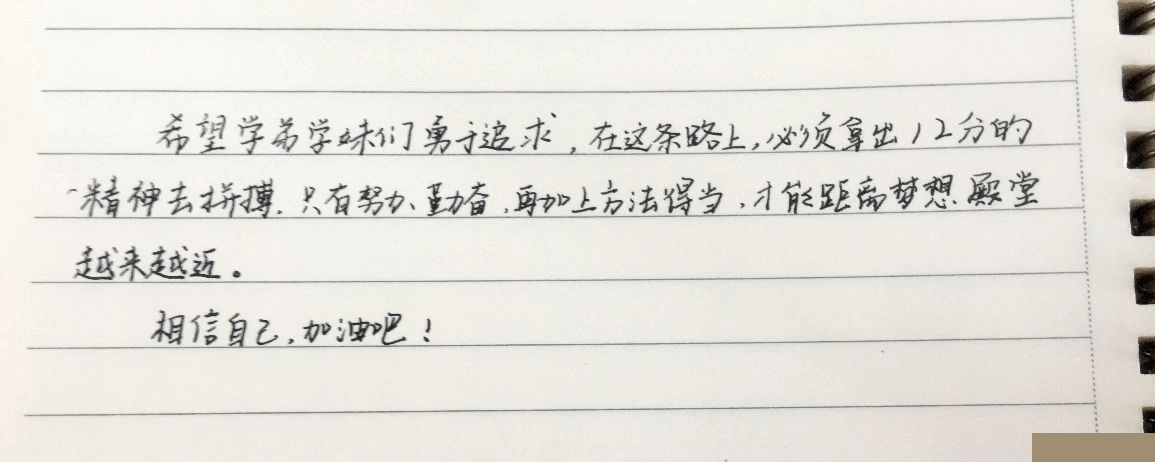 希望学弟学妹们勇于追求，在这条路上，必须拿出12分的
精神去拼搏.只有努力、勤奋,再加上方法得当,才能距离梦想殿堂
越来越近。
相信自己,加油吧！